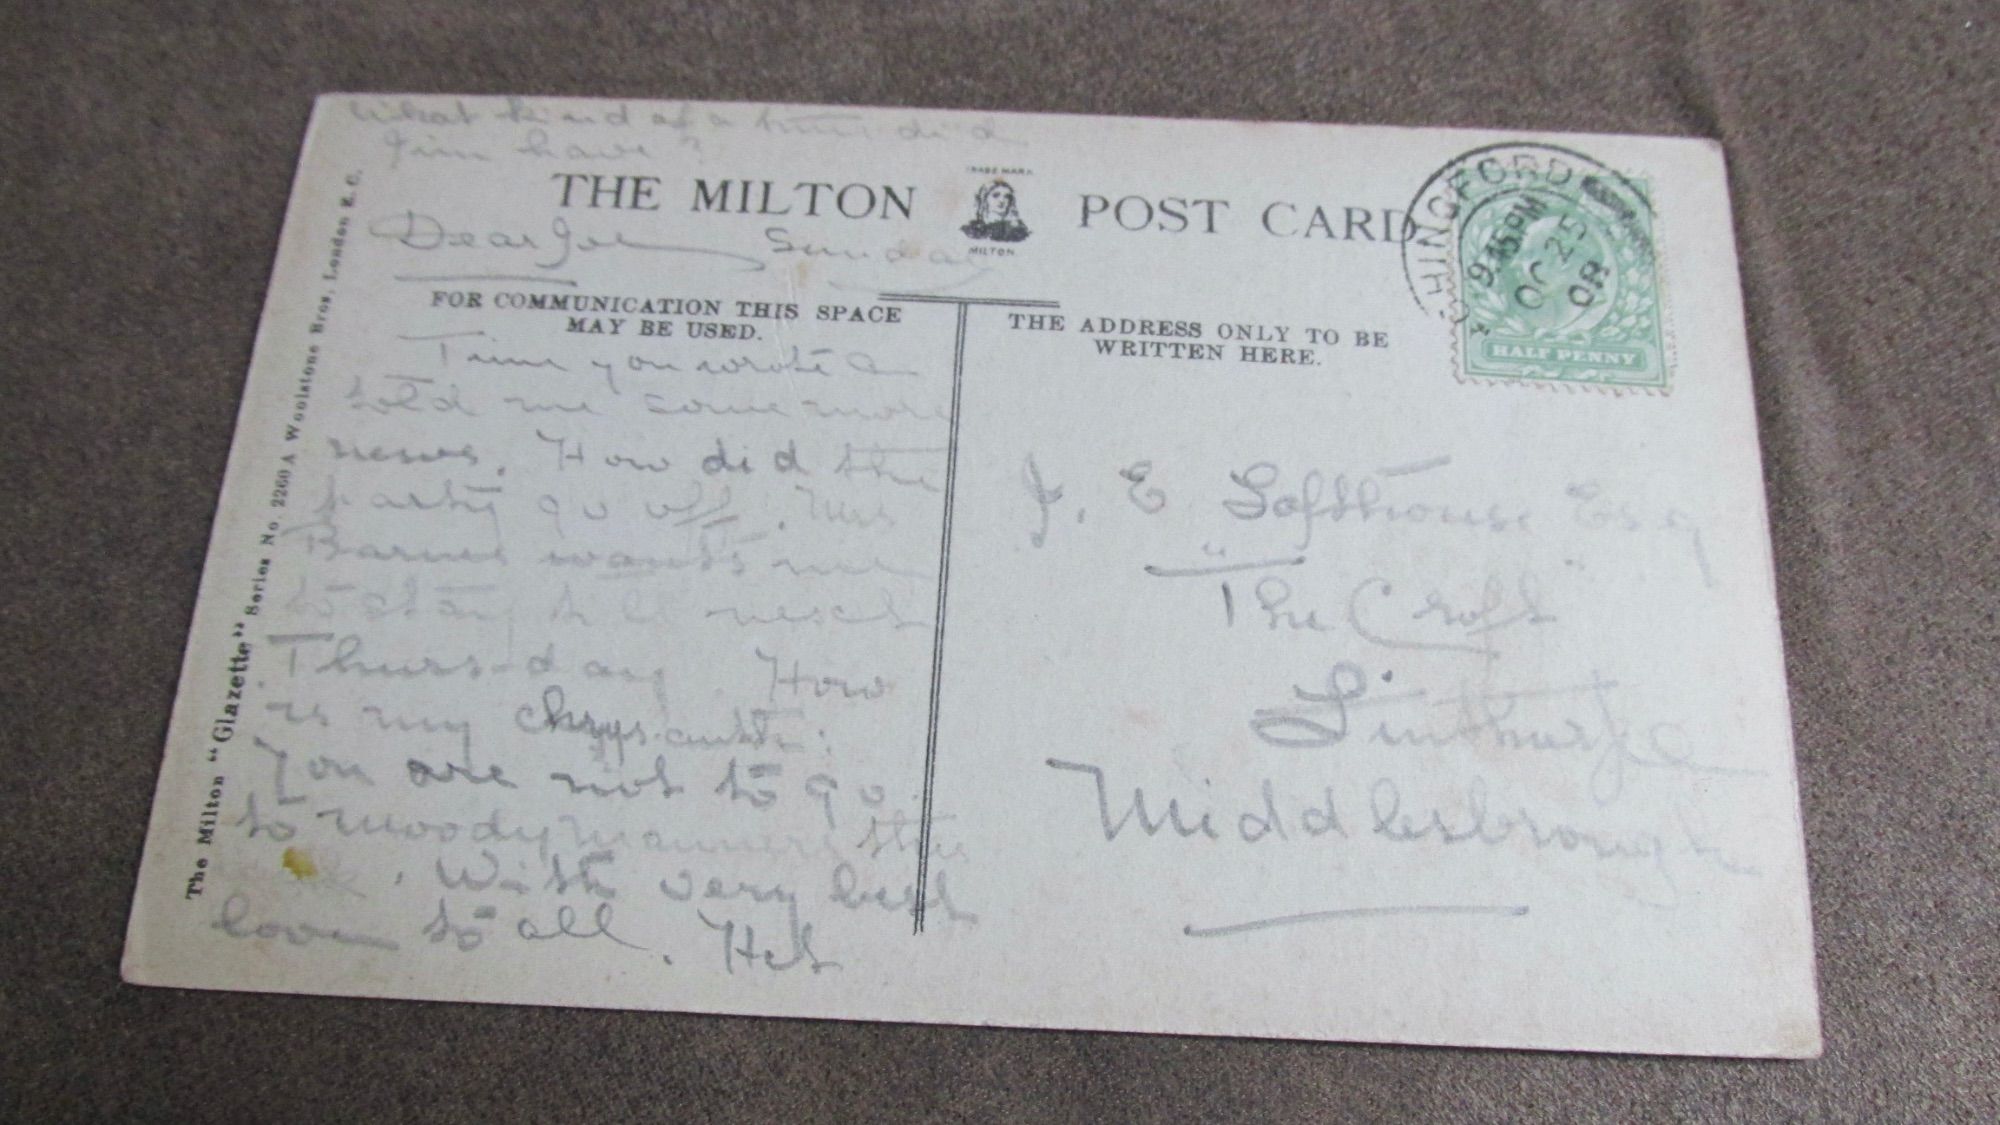 What kind of a time did
Jim have?
THE MILTON POST CARD
TRADE MARK
MILTON.
Dear Joe Sunday
FOR COMMUNICATION THIS SPACE
MAY BE USED.
THE ADDRESS ONLY TO BE
WRITTEN HERE.
Time you wrote &
told me some more
news. How did the
party go off. Mrs
Barnes wants me
to stay till next
Thursday. How
is my chrysanth:
You are not to go
to Moody Manners this
. With very best
love to all. Het
J. E Lofthouse Esq
The Croft
Linthorpe
Middlesbrough
CHINGFORD
9.45PM
OC 25
08
HALF PENNY
The Milton "Glazette" Series No. 2260 A Woolstone Bros, London E.C.